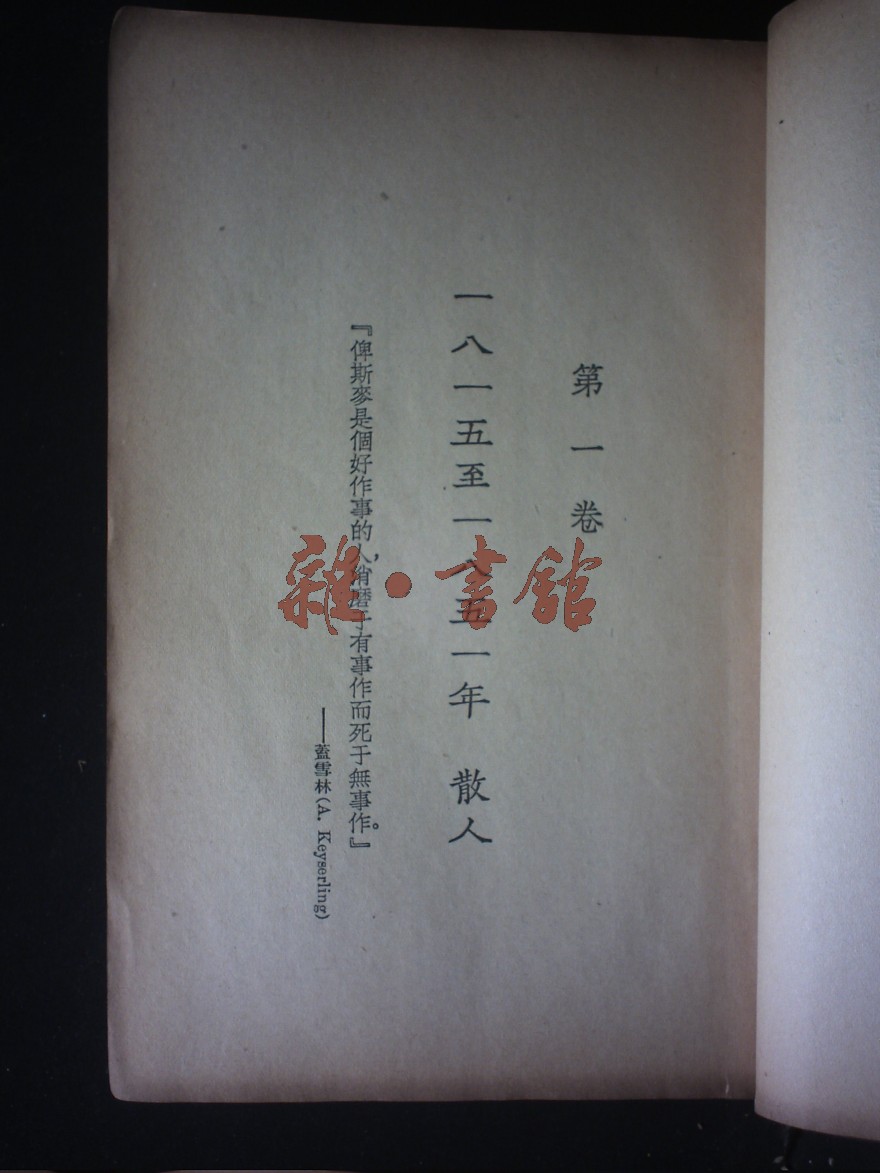 第一卷
一八一五至一八五一年　散人
『俾斯麥是個好作事的人，消磨于有事作而死于無事作。』
——蓋雪林(A. Keyserling)
雜·書館